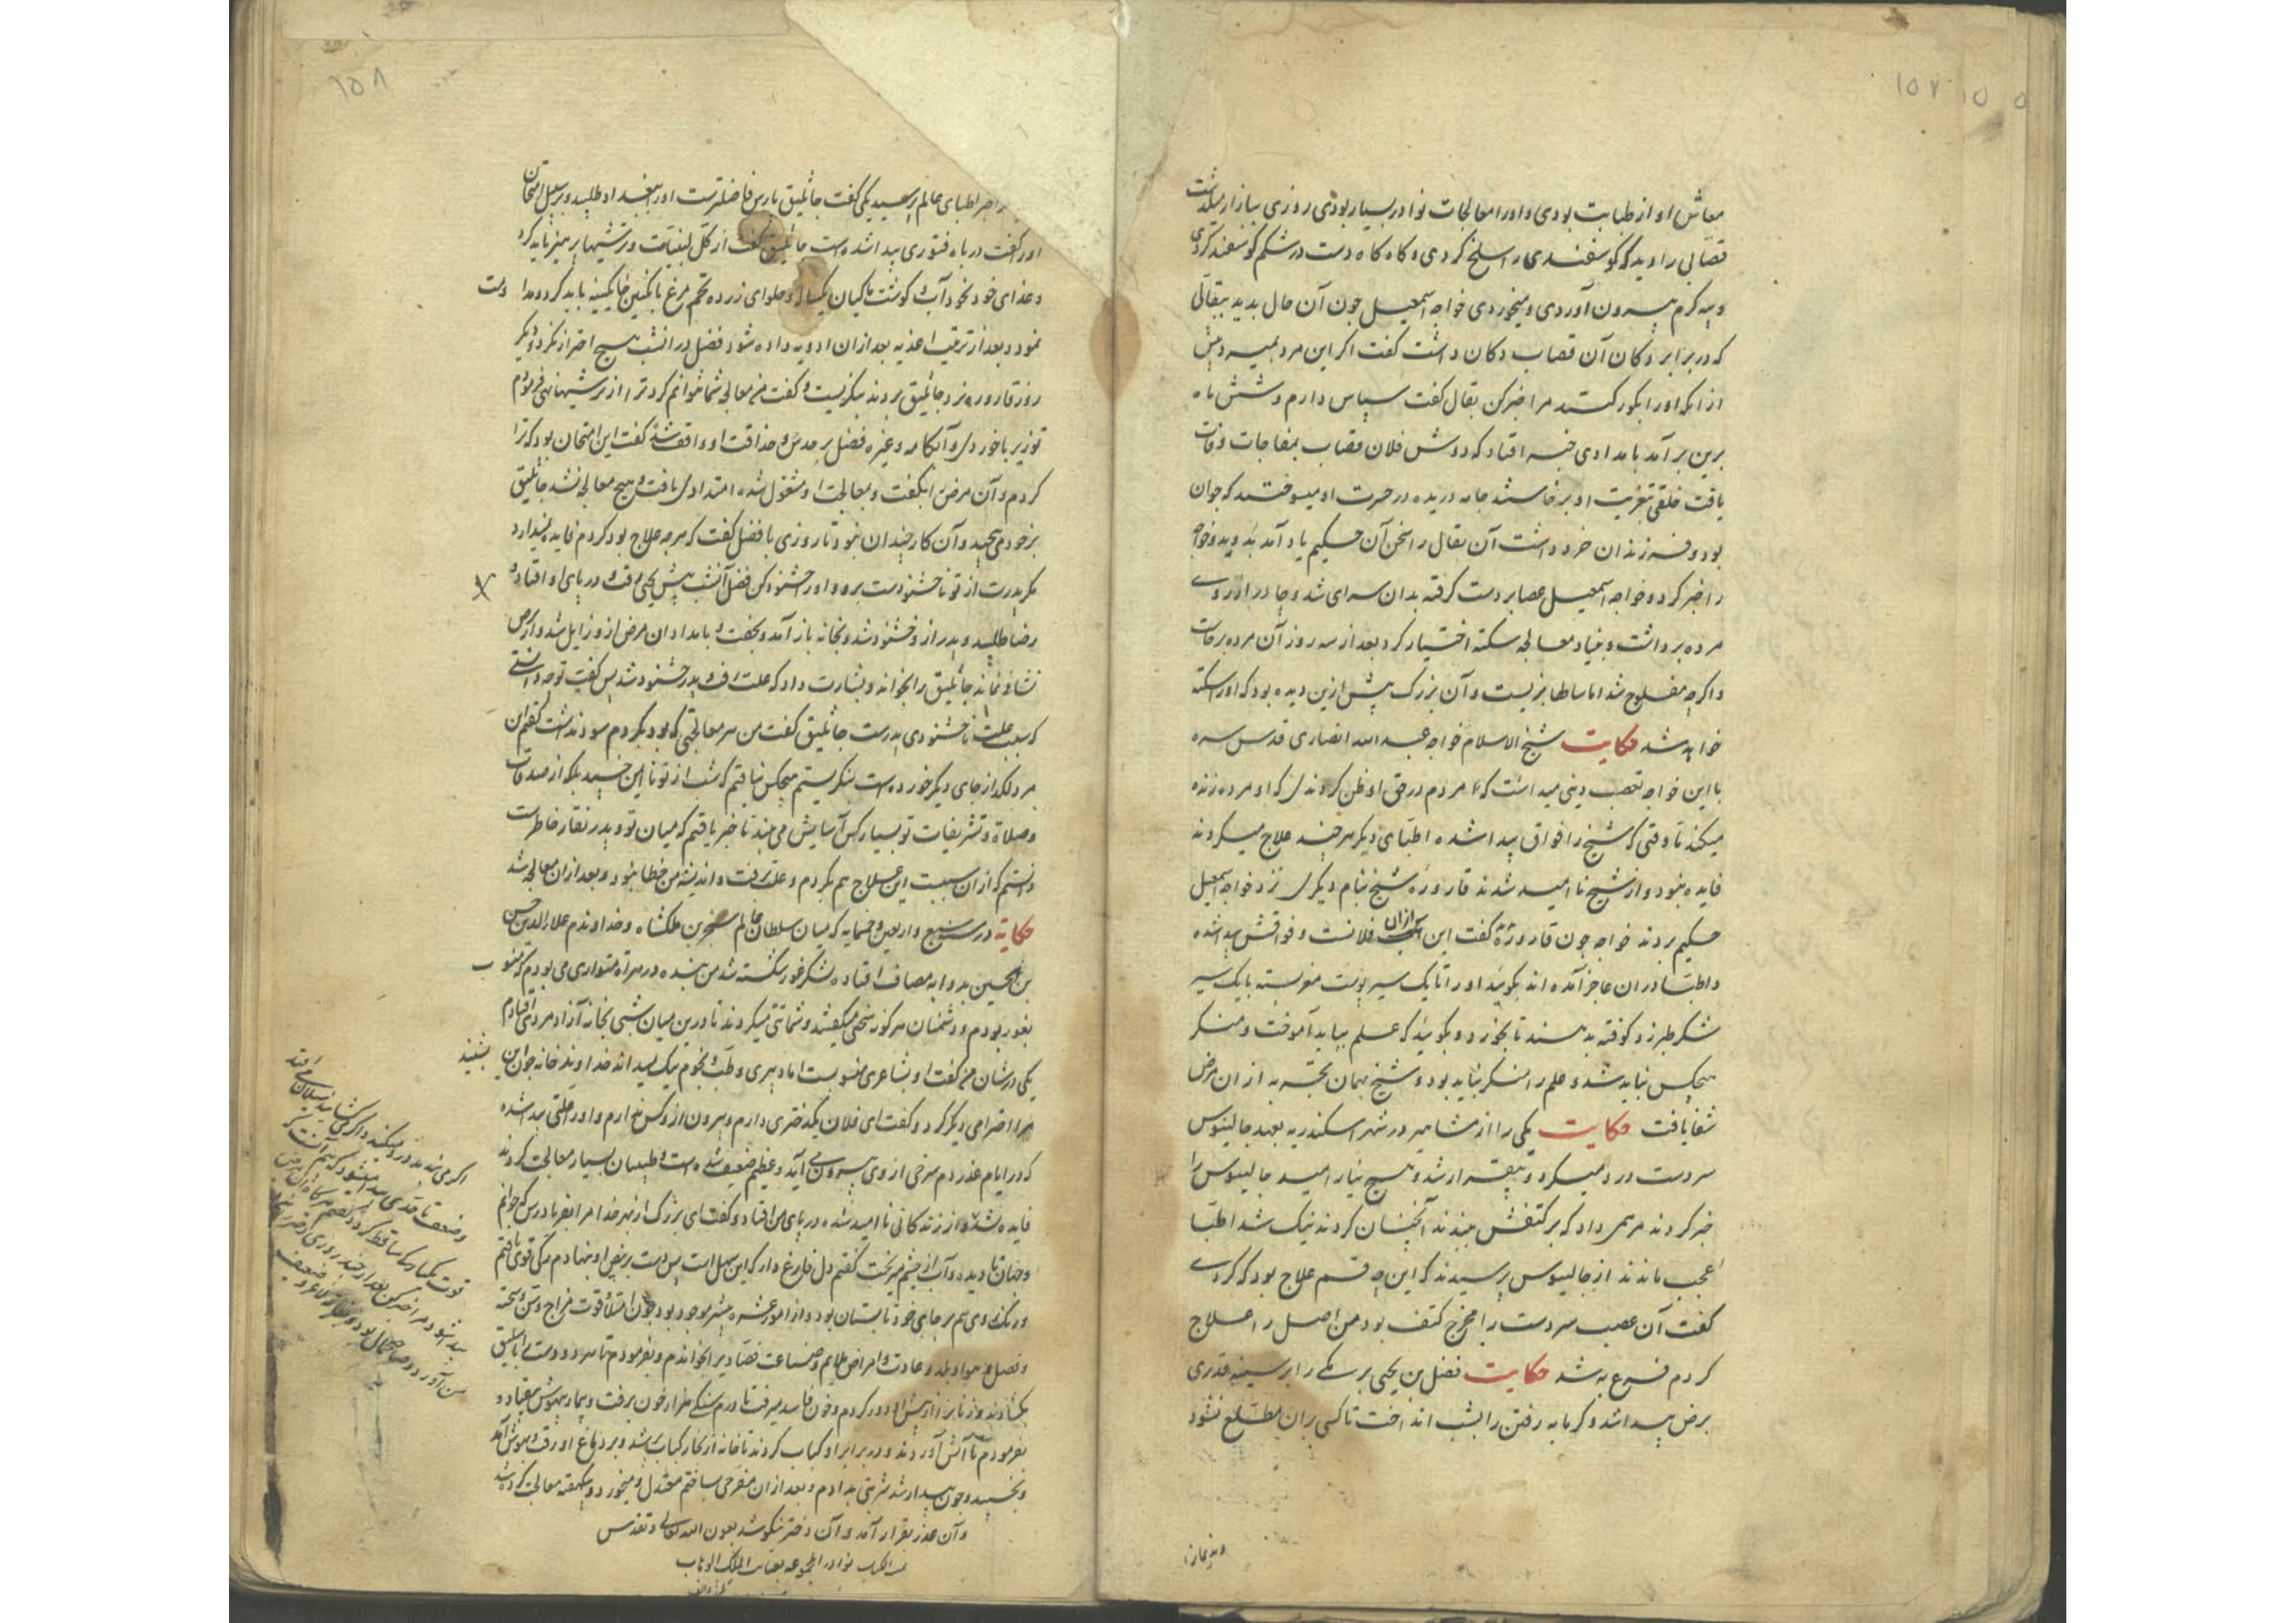 ۱۵۷
معاش او از طبابت بودی و او را معالجات نوادر بسیار بودی روزی ببازار میگذشت
قصابی را دید که گوسفندی را سلخ کردی و کاه کاه دست در شکم گوسفند کردی
و پیه گرم بیرون آوردی و میخوردی خواجه اسمعیل چون آن حال بدید ببقالی
که در برابر دکان آن قصاب دکان داشت گفت اگر این مرد بمیرد پیش
از آنکه او را بگور کنند مرا خبر کن بقال گفت سپاس دارم و شش ماه
برین برآمد بامدادی خبر افتاد که دوش فلان قصاب بمفاجات وفات
یافت خلقی بتعزیت او برخاستند جامه دریده در حسرت او میسوختند که جوان
بود و فرزندان خرد داشت آن بقال را سخن آن حکیم یاد آمد بدوید و خواجه
را خبر کرد و خواجه اسمعیل عصا بر دست گرفته بدان سرای شد و چادر از روی
مرده برداشت و بنیاد معالجه سکته اختیار کرد بعد از سه روز آن مرده برخاست
و اگرچه مفلوج شد اما سالها بزیست و آن بزرگ پیش ازین دیده بود که او را سکته
خواهد شد حکایت شیخ الاسلام خواجه عبد الله انصاری قدس سره
با این خواجه تعصب دینی میداشت که مردم در حق او ظن کردندی که او مرده زنده
میکند تا وقتی که شیخ را فواق پیدا شد اطبای دیگر هرچند علاج میکردند
فایده نبود و از شیخ نا امید شدند قاروره شیخ بنام دیگری نزد خواجه اسمعیل
حکیم بردند خواجه چون قاروره گفت این آب از آن فلانست و فواقش پیدا شده
و اطبا در آن عاجز آمده اند بگوئید او را تا یک سیر پوست مغز پسته با یک سیر
شکر طبرزد کوفته بدهند تا بخورد و بگوئید که علم بباید آموخت و منکر
هیچکس نباید شد و علم را منکر نباید بود و شیخ بهمان بخت به از آن مرض
شفا یافت حکایت یکی را از مشاهیر در شهر اسکندریه بعهد جالینوس
سر دست درد میکرد و بیقرار شد و هیچ نیارامید جالینوس را
خبر کردند مرهمی داد که بر کتفش بنهند آنچنان کردند نیک شد اطبا
عجب ماندند از جالینوس پرسیدند که این چه قسم علاج بود که کردی
گفت آن عصب سر دست را مخرج کتف بود من اصل را علاج
کردم فرع به شد حکایت فضل بن یحیی برمکی را بر سینه قدری
برص پیدا شد و گرمابه رفتن را بشب انداخت تا کسی بران مطلع نشود
۱۵۸
حاضر اطبای عالم پرسید یکی گفت جاثلیق پارس فاضلترست او را ببغداد طلبید و بر سبیل امتحان
او را گفت در باه فتوری پیدا شده است جاثلیق گفت از کل لبنیات و ترشیها پرهیز باید کرد
و غذای خود نخود آب و گوشت ماکیان یکساله و حلوای زرده تخم مرغ باید کرد
نمود و بعد از ترتیب اغذیه بعد از آن ادویه داده شود فضل در آنشب هیچ احتراز نکرد دیگر
روز قاروره نزد جاثلیق بردند بنگریست و گفت من معالجه شما نتوانم کرد ترا از ترشیها نهی فرمودم
تو زیربا خوردی و آبکامه و غیره فضل بر حدس و حذاقت او واقف شد گفت این امتحان بود که ترا
کردم و آن مرض را بگفت و بمعالجت او مشغول شد امتدادی یافت و هیچ معالجه نشد جاثلیق
بر خود می پیچید و آن کار چندان نبود تا روزی با فضل گفت که هرچه علاج بود کردم فایده نمیدارد
مگر پدرت از تو ناخشنودست برو و او را خشنود کن فضل آنشب پیش یحیی رفت و در پای او افتاد و
رضا طلبید و پدر از و خشنود شد و بخانه باز آمد و بخفت و بامدادان مرض از و زایل شد و از برص
نشانی نماند جاثلیق را بخواند و بشارت داد که علت رفت و پدر خشنود شد پس گفت تو چه دانستی
که سبب علت ناخشنودی پدرست جاثلیق گفت من هر معالجتی که بود بکردم سود نداشت گفتم این
مرد لگد از جای دیگر خورده است بنگریستم هیچکس نیافتم که شب از تو نا ایمن خسپد بلکه از صدقات
و صلات و تشریفات تو بسیار کس آسایش می بینند تا خبر یافتم که میان تو و پدر نقار خاطرست
دانستم که از آن سببست این علاج هم بکردم و علت برفت و اندیشه من خطا نبود و بعد از آن معالجه شد
حکایة در سنه سبع و اربعین و خمسمایه که میان سلطان عالم سنجر بن ملکشاه و خداوندم علاء الدین حسین
بن الحسین بدر اوبه مصاف افتاد و لشکر غور شکسته شد من بنده در هراه متواری می بودم که منسوب
بغور بودم و دشمنان هر گونه سخنی میگفتند و شماتتی میکردند تا درین میان شبی بخانه آزاد مردی افتادم
یکی در شان من گفت او بشاعری منسوبست اما دبیری و طب و نجوم نیک میداند خداوند خانه چون این بشنید
مرا احترامی دیگر کرد و گفت ای فلان یک دختری دارم و بیرون از و کس ندارم و او را علتی پیدا شده
که در ایام عذر دم سرخی از وی بیرون می آید و عظیم ضعیف شده است و طبیبان بسیار معالجت کردند
فایده نشد و از زندگانی نا امید شده در پای من افتاد و گفت ای بزرگ از بهر خدا مرا بفریاد رس که جوانم
و جهان نادیده و آب از چشم میریخت گفتم دل فارغ دار که این سهل است پس دست بر نبض او بنهادم رگی قوی یافتم
و رنگ روی هم بر جای خود تابستان بود و از امور عشره بیشتر موجود بود چون امتلا و قوت مزاج و سن و سحنه
و فصل و هوا و بلد و عادت و اعراض ملایم و صناعت فصاد را بخواندم و بفرمودم تا هر دو دست را باسلیق
بگشادند و زنانرا از پیش او دور کردم و خون فاسد میرفت تا درم سنگی هزار خون برفت و بیمار بیهوش بیفتاد و
بفرمودم تا آتش آوردند و در برابر او کباب کردند تا خانه از بخار کباب پر شد و بر دماغ او رفت و بهوش آمد
و بخسپید و چون بیدار شد شربتی بدادم و بعد از آن مفرحی ساختم معتدل و میخورد و یکهفته معالجت کرده شد
و آن عذر بقرار آمد و آن دختر نیکو شد بعون الله تعالی و تقدس